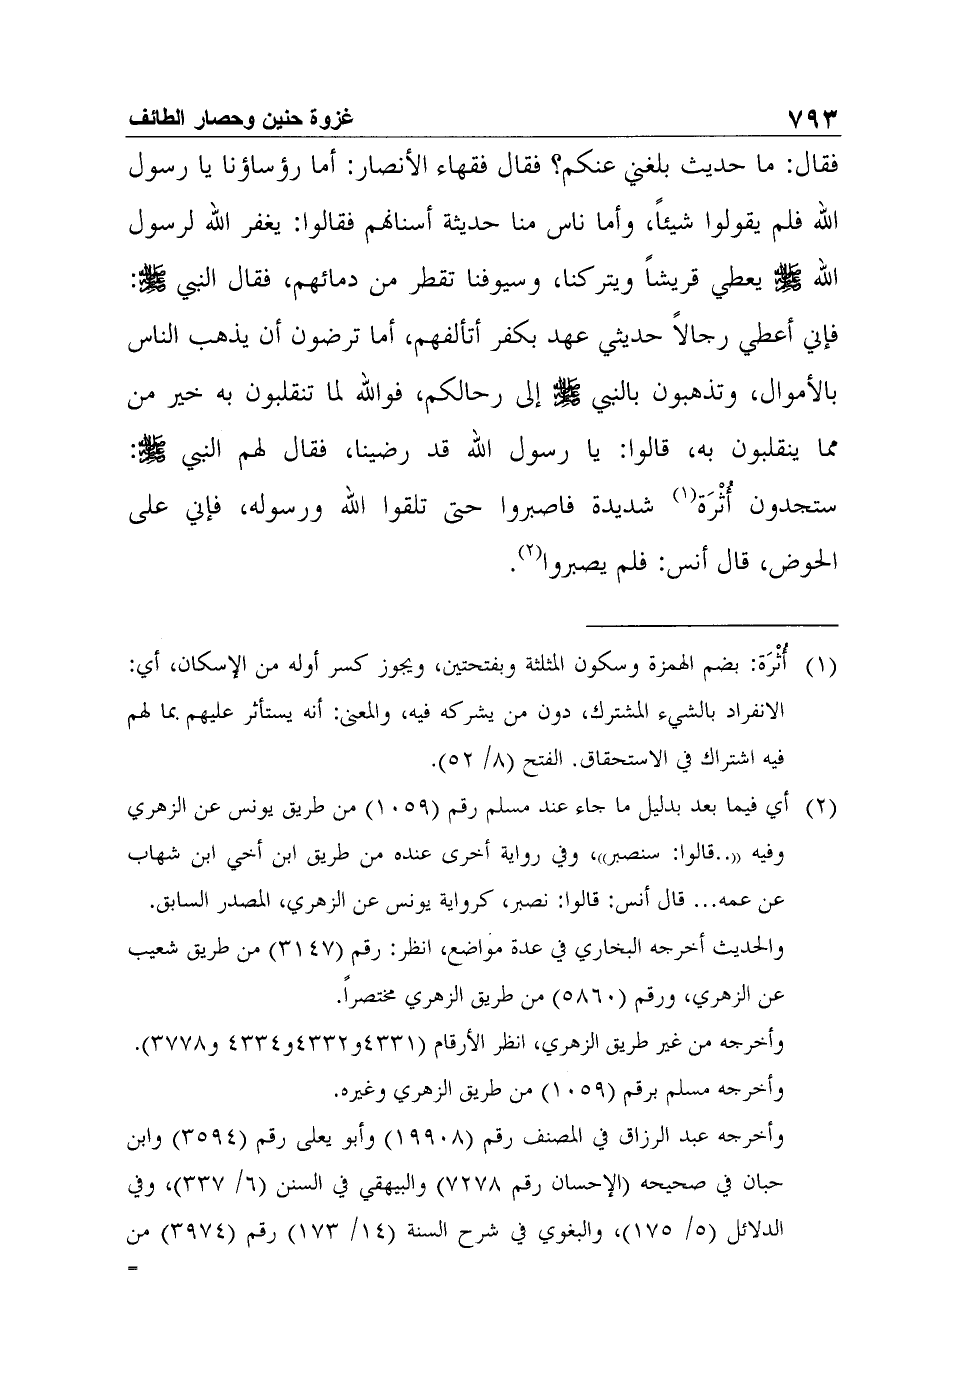 ٧٩٣ غزوة حنين وحصار الطائف
فقال: ما حديث بلغني عنكم؟ فقال فقهاء الأنصار: أما رؤساؤنا يا رسول
الله فلم يقولوا شيئاً، وأما ناس منا حديثة أسنانهم فقالوا: يغفر الله لرسول
الله ﷺ يعطي قريشاً ويتركنا، وسيوفنا تقطر من دمائهم، فقال النبي ﷺ:
فإني أعطي رجالاً حديثي عهد بكفر أتألفهم، أما ترضون أن يذهب الناس
بالأموال، وتذهبون بالنبي ﷺ إلى رحالكم، فوالله لما تنقلبون به خير من
مما ينقلبون به، قالوا: يا رسول الله قد رضينا، فقال لهم النبي ﷺ:
ستجدون أُثْرَة(١) شديدة فاصبروا حتى تلقوا الله ورسوله، فإني على
الحوض، قال أنس: فلم يصبروا(٢).
(١) أُثْرَة: بضم الهمزة وسكون المثلثة وبفتحتين، ويجوز كسر أوله من الإسكان، أي:
الانفراد بالشيء المشترك، دون من يشركه فيه، والمعنى: أنه يستأثر عليهم بما لهم
فيه اشتراك في الاستحقاق. الفتح (٨/ ٥٢).
(٢) أي فيما بعد بدليل ما جاء عند مسلم رقم (١٠٥٩) من طريق يونس عن الزهري
وفيه ((..قالوا: سنصبر))، وفي رواية أخرى عنده من طريق ابن أخي ابن شهاب
عن عمه... قال أنس: قالوا: نصبر، كرواية يونس عن الزهري، المصدر السابق.
والحديث أخرجه البخاري في عدة مواضع، انظر: رقم (٣١٤٧) من طريق شعيب
عن الزهري، ورقم (٥٨٦٠) من طريق الزهري مختصراً.
وأخرجه من غير طريق الزهري، انظر الأرقام (٤٣٣١و٤٣٣٢و٤٣٣٤ و٣٧٧٨).
وأخرجه مسلم برقم (١٠٥٩) من طريق الزهري وغيره.
وأخرجه عبد الرزاق في المصنف رقم (١٩٩٠٨) وأبو يعلى رقم (٣٥٩٤) وابن
حبان في صحيحه (الإحسان رقم ٧٢٧٨) والبيهقي في السنن (٦/ ٣٣٧)، وفي
الدلائل (٥/ ١٧٥)، والبغوي في شرح السنة (١٤/ ١٧٣) رقم (٣٩٧٤) من
=